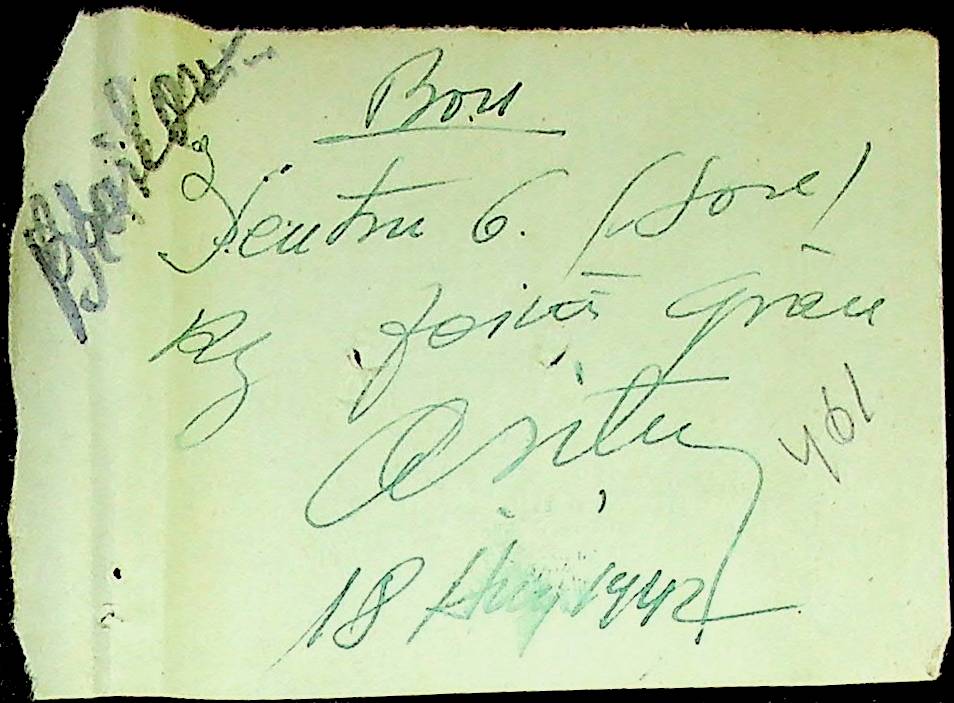 Bon
Pentru 6. (șase)
Kg făină Grâu
18 Aug 1942
461